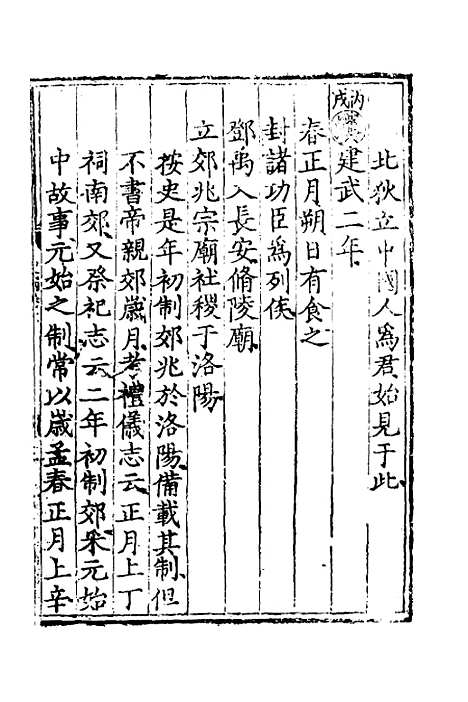 北狄立中國人爲君始見于此
丙戌
建武二年
春正月朔日有食之
封諸功臣爲列侯
鄧禹入長安脩陵廟
立郊兆宗廟社稷于洛陽
按史是年初制郊兆於洛陽備載其制但
不書帝親郊歲月考禮儀志云正月上丁
祠南郊又祭祀志云二年初制郊采元始
中故事元始之制常以歲孟春正月上辛